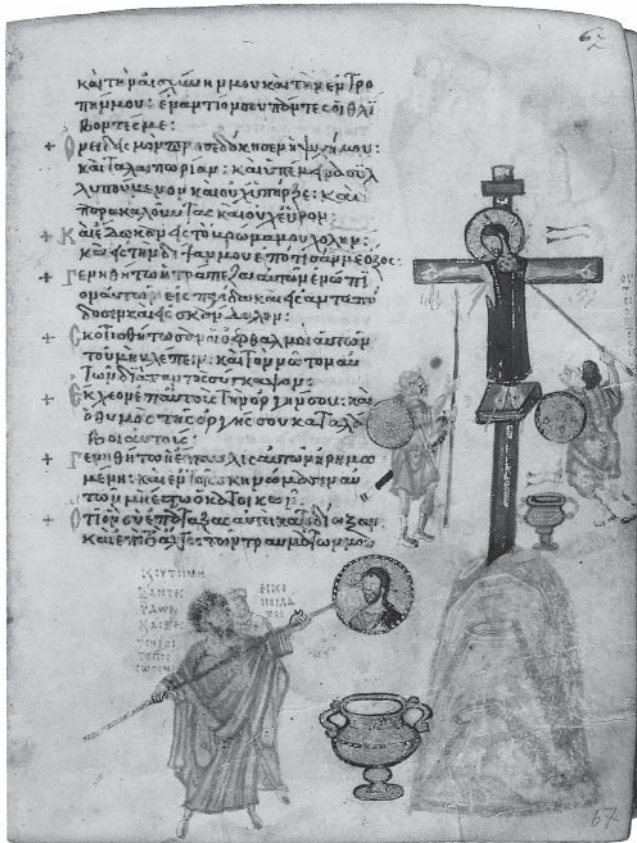 καὶ τὴν αἰσχύνην μου καὶ τὴν ἐντρο
πήν μου: ἐναντίον σου πάντες οἱ θλί
βοντές με:
+ Ὀνειδισμὸν προσεδόκησεν ἡ ψυχή μου:
καὶ ταλαιπωρίαν: καὶ ὑπέμεινα συλ
λυπούμενον καὶ οὐχ ὑπῆρξε: καὶ
παρακαλοῦντας καὶ οὐχ εὗρον:
+ Καὶ ἔδωκαν εἰς τὸ βρῶμα μου χολὴν:
καὶ εἰς τὴν δίψαν μου ἐπότισάν με ὄξος:
+ Γενηθήτω ἡ τράπεζα αὐτῶν ἐνώπι
ον αὐτῶν εἰς παγίδα καὶ εἰς ἀνταπό
δοσιν καὶ εἰς σκάνδαλον:
+ Σκοτισθήτωσαν οἱ ὀφθαλμοὶ αὐτῶν
τοῦ μὴ βλέπειν: καὶ τὸν νῶτον αὐ
τῶν διὰ παντὸς σύγκαμψον:
+ Ἔκχεον ἐπ' αὐτοὺς τὴν ὀργήν σου: καὶ
ὁ θυμὸς τῆς ὀργῆς σου καταλά
βοι αὐτούς:
+ Γενηθήτω ἡ ἔπαυλις αὐτῶν ἠρημω
μένη: καὶ ἐν τοῖς σκηνώμασιν αὐ
τῶν μὴ ἔστω ὁ κατοικῶν:
+ Ὅτι ὃν σὺ ἐπάταξας αὐτοὶ κατεδίωξαν
καὶ ἐπὶ τὸ ἄλγος τῶν τραυμάτων μου
67